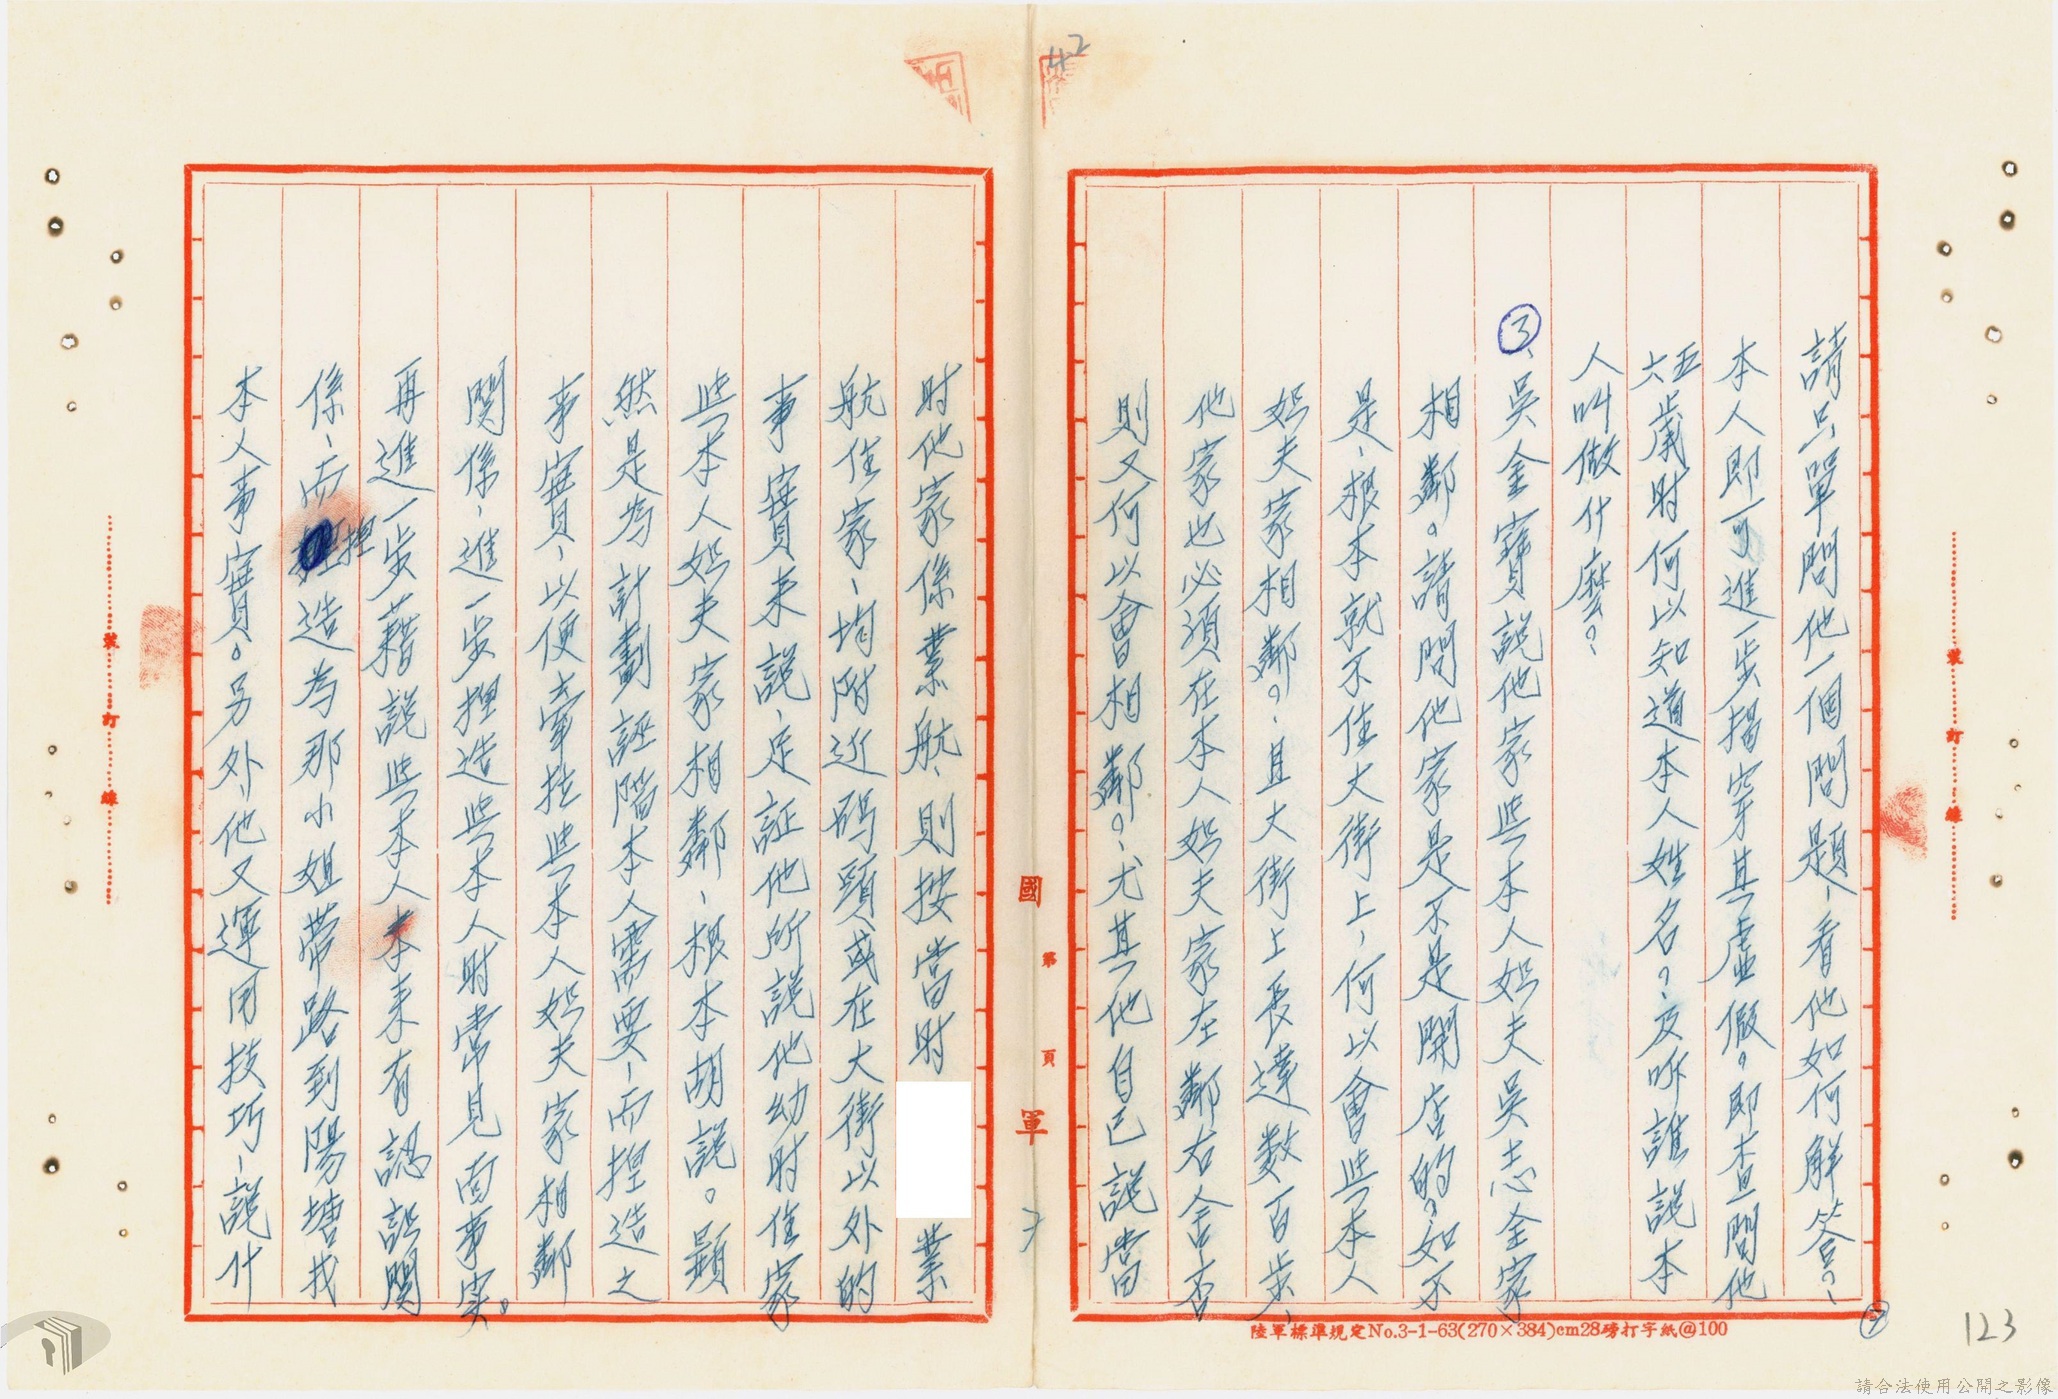 請只單問他一個問題、看他如何解答？、
本人即可進一步揭穿其虛假。即查問他
六五歲时何以知道本人姓名？、及听誰說本
人叫做什麼？、
③、吳金寶說他家些本人姐夫吳志全家
相鄰。請問他家是不是開店的？如不
是、根本就不住大街上，何以會些本人
姐夫家相鄰？、且大街上長達数百步、
他家也必須在本人姐夫家左鄰右舍、否
則又何以會相鄰？、尤其他自己說當
时他家係業航、則按當时　業
航住家、均附近碼頭或在大街以外的
事實来說、足証他所說他幼时住家
些本人姐夫家相鄰、根本胡說。顯
然是為計劃誣陷本人需要、而捏造之
事實、以便牽扯些本人姐夫家相鄰
関係、進一步捏造些本人时常見面事实。
再進一步藉說些本人本来有認識関
係、而捏造為那小姐带路到陽塘找
本人事實。另外、他又運用技巧、說什
國軍
第頁
陸軍標準規定No.3-1-63(270×384)cm28磅打字紙@100
裝訂線
裝訂線
42
⑦
123
請合法使用公開之影像